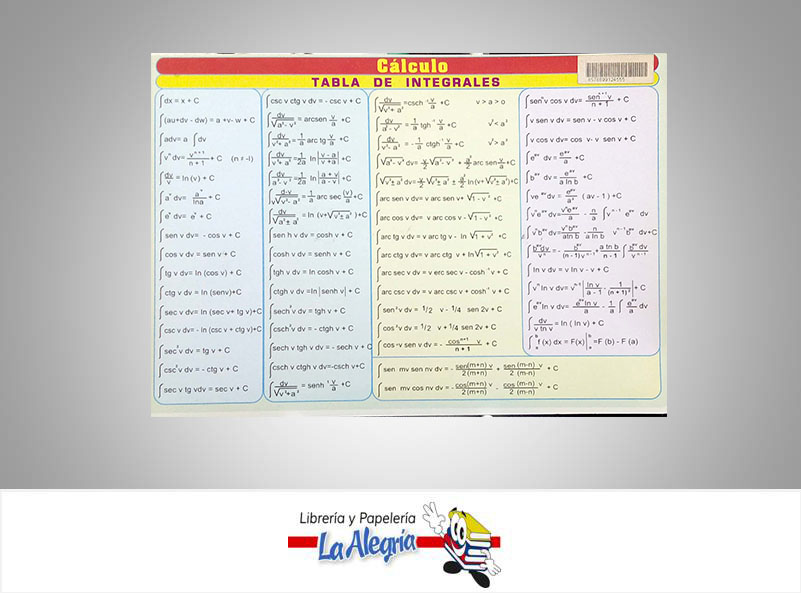 Cálculo
TABLA DE INTEGRALES
∫dx = x + C
∫(au+dv - dw) = a +v- w + C
∫adv= a ∫dv
∫vⁿ dv= vⁿ⁺¹/n + 1 + C (n ≠ -I)
∫dv/v = ln (v) + C
∫aᵛ dv= aᵛ/lna + C
∫eᵛ dv= eᵛ + C
∫sen v dv= - cos v + C
∫cos v dv = sen v + C
∫tg v dv= ln (cos v) + C
∫ctg v dv = ln (senv)+C
∫sec v dv= ln (sec v+ tg v)+C
∫csc v dv= - in (csc v + ctg v)+C
∫sec² v dv = tg v + C
∫csc² v dv = - ctg v + C
∫sec v tg vdv = sec v + C
∫csc v ctg v dv = - csc v + C
∫dv/√a²- v² = arcsen v/a +C
∫dv/v²+ a² = 1/a arc tg v/a +C
∫dv/v²+ a² = 1/2a ln |v - a/v +a| +C
∫dv/a²- v² = 1/2a ln |a + v/a - v| +C
∫d-v/v√v²- a² = 1/a arc sec (v)/a +C
∫dv/√a²± a² = ln (v+√v²± a²)+C
∫sen h v dv = cosh v + C
∫cosh v dv = senh v + C
∫tgh v dv = ln cosh v + C
∫ctgh v dv =ln|senh v| + C
∫sech² v dv = tgh v + C
∫csch² v dv = - ctgh v + C
∫sech v tgh v dv = - sech v + C
∫csch v ctgh v dv=-csch v+C
∫dv/√v²+a² = senh⁻¹ v/a +C
∫dv/√v²+ a² =csch⁻¹ v/a +C v > a > o
∫dv/a²- v² = 1/a tgh⁻¹ v/a +C v²< a²
∫dv/v²- a² = - 1/a ctgh⁻¹ v/a +C v²> a²
∫√a²- v² dv= v/2 √a²- v² + a²/2 arc sen v/a +C
∫√v²± a² dv= v/2 √v²± a² ± a²/2 ln (v+√v²± a²)+C
∫arc sen v dv= v arc sen v+ √1 - v² + C
∫arc cos v dv= v arc cos v - √1 - v² + C
∫arc tg v dv = v arc tg v - ln √1 + v² +C
∫arc ctg v dv= v arc ctg v + ln √1 + v² +C
∫arc sec v dv = v erc sec v - cosh⁻¹ v + C
∫arc csc v dv = v arc csc v + cosh⁻¹ v + C
∫sen² v dv = 1/2 v - 1/4 sen 2v + C
∫cos² v dv = 1/2 v + 1/4 sen 2v + C
∫cosⁿ v sen v dv = - cosⁿ⁺¹ v/n + 1 + C
∫senⁿ v cos v dv= senⁿ⁺¹ v/n + 1 + C
∫v sen v dv = sen v - v cos v + C
∫v cos v dv= cos v- v sen v + C
∫eᵃᵛ dv= eᵃᵛ/a +C
∫bᵃᵛ dv= eᵃᵛ/a ln b +C
∫ve ᵃᵛ dv = eᵃᵛ/a² ( av - 1 ) +C
∫vⁿeᵃᵛ dv= vⁿeᵃᵛ/a - n/a ∫vⁿ⁻¹ eᵃᵛ dv
∫vⁿbᵃᵛ dv= vⁿbᵃᵛ/aln b - n/a ln b vⁿ⁻¹bᵃᵛ dv+C
∫bᵃᵛdv/vⁿ = - bᵃᵛ/(n - 1)vⁿ⁻¹ + a ln b/n - 1 ∫bᵃᵛ dv/vⁿ⁻¹
∫ln v dv = v ln v - v + C
∫vⁿ ln v dv= vⁿ⁺¹ |ln v/a - 1 - 1/(n + 1)²| +C
∫eᵃᵛ ln v dv= eᵃᵛ ln v/a - 1/a ∫eᵃᵛ/a dv
∫dv/v ln v = ln ( ln v) + C
∫ᵇₐ f (x) dx = F(x)|ᵇₐ =F (b) - F (a)
∫sen mv sen nv dv = - sen(m+n) v/2 (m+n) + sen (m-n) v/2 (m-n) + C
∫sen mv cos nv dv = - cos(m+n) v/2 (m+n) - cos (m-n) v/2 (m-n) + C
Librería y Papelería
La Alegría